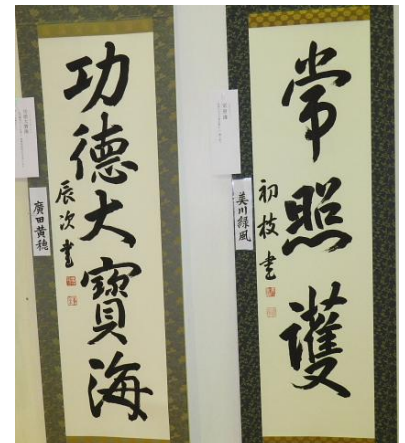 常照護
初枝書
美川緑風
功德大寶海
辰次書
廣田黄穂